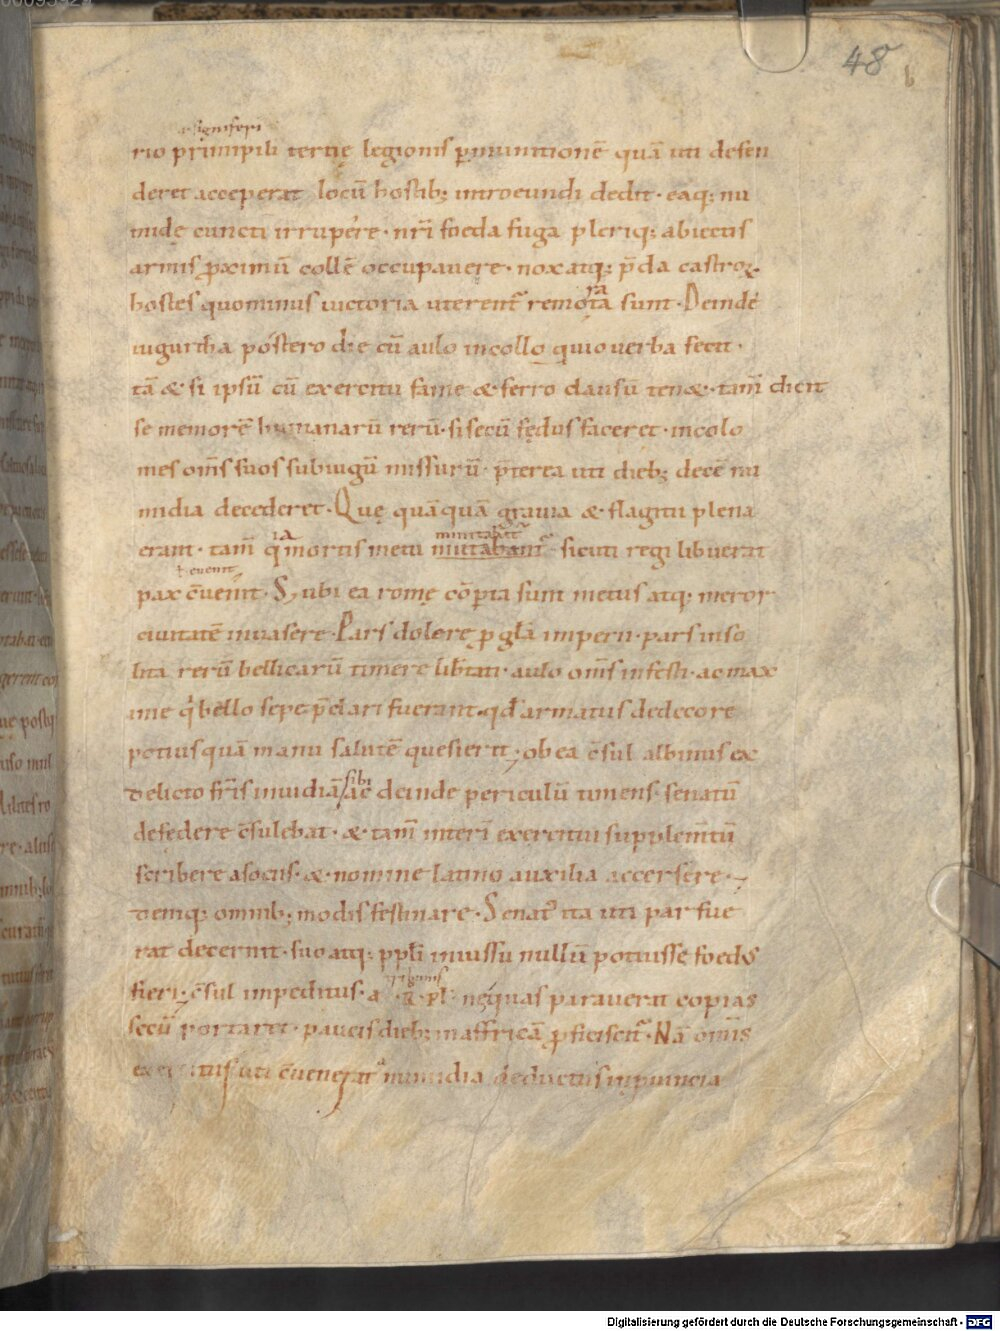 48
b
signiferi
rio primipili tertię legionis p̱munitionē quā uti defen
deret acceperat locū hostib; introeundi dedit · eaq; nu
midę cuncti irrupere · nr̄i foeda fuga pleriq; abiectis
armis ꝓximū collē occupauere · nox atq; p̄da castroꝝ
ra
hostes quominus uictoria uterent᷑ remota sunt · Deinde
iugurtha postero die cū aulo incolloquio uerba fecit ·
tā & si ipsū cū exercitu fame & ferro clausū ten& · tam̄ dicit
se memorē humanarū rerū · si secū fędus faceret · incolo
mes om̄s suos subiugū missurū · p̄terea uti dieb; decē nu
midia decederet · Quę quāquā grauia & flagitii plena
erant · tam̄ q mortis metu mutabant᷑ sicuti regi libuerat
ł euenit
pax c̄uenit · S; ubi ea romę cōp̱ta sunt metus atq; meror
ciuitatē inuasere · Pars dolere ꝓ gl̄a imperii · pars inso
lita rerū bellicarū timere lib̄tati · aulo om̄s infesti · ac max
ime q bello sepe p̄clari fuerant · qđ armatus dedecore
potius quā manu salutē quesierit ; ob ea c̄sul albinus ex
sibi
delicto fr̄is inuidiā ac deinde periculū timens · senatū
defędere c̄sulebat · & tam̄ interī exercitui supplem̄tū
scribere asociis · & nomine latino auxilia accersere ·
deniq; omnib; modis festinare · Senat᷒ ita uti par fue
rat decernit · suo atq; ppl̄i iniussu nullū potuisse foedus
tribunis
fieri ; c̄sul impeditus · a · pl̄ · nequas parauerat copias
secū portaret · paucis dieb; inaffricā ꝓficiscit᷑ · Nā om̄is
exercitus uti c̄uenerat numidia deductus inp̱uincia
Digitalisierung gefördert durch die Deutsche Forschungsgemeinschaft - DFG